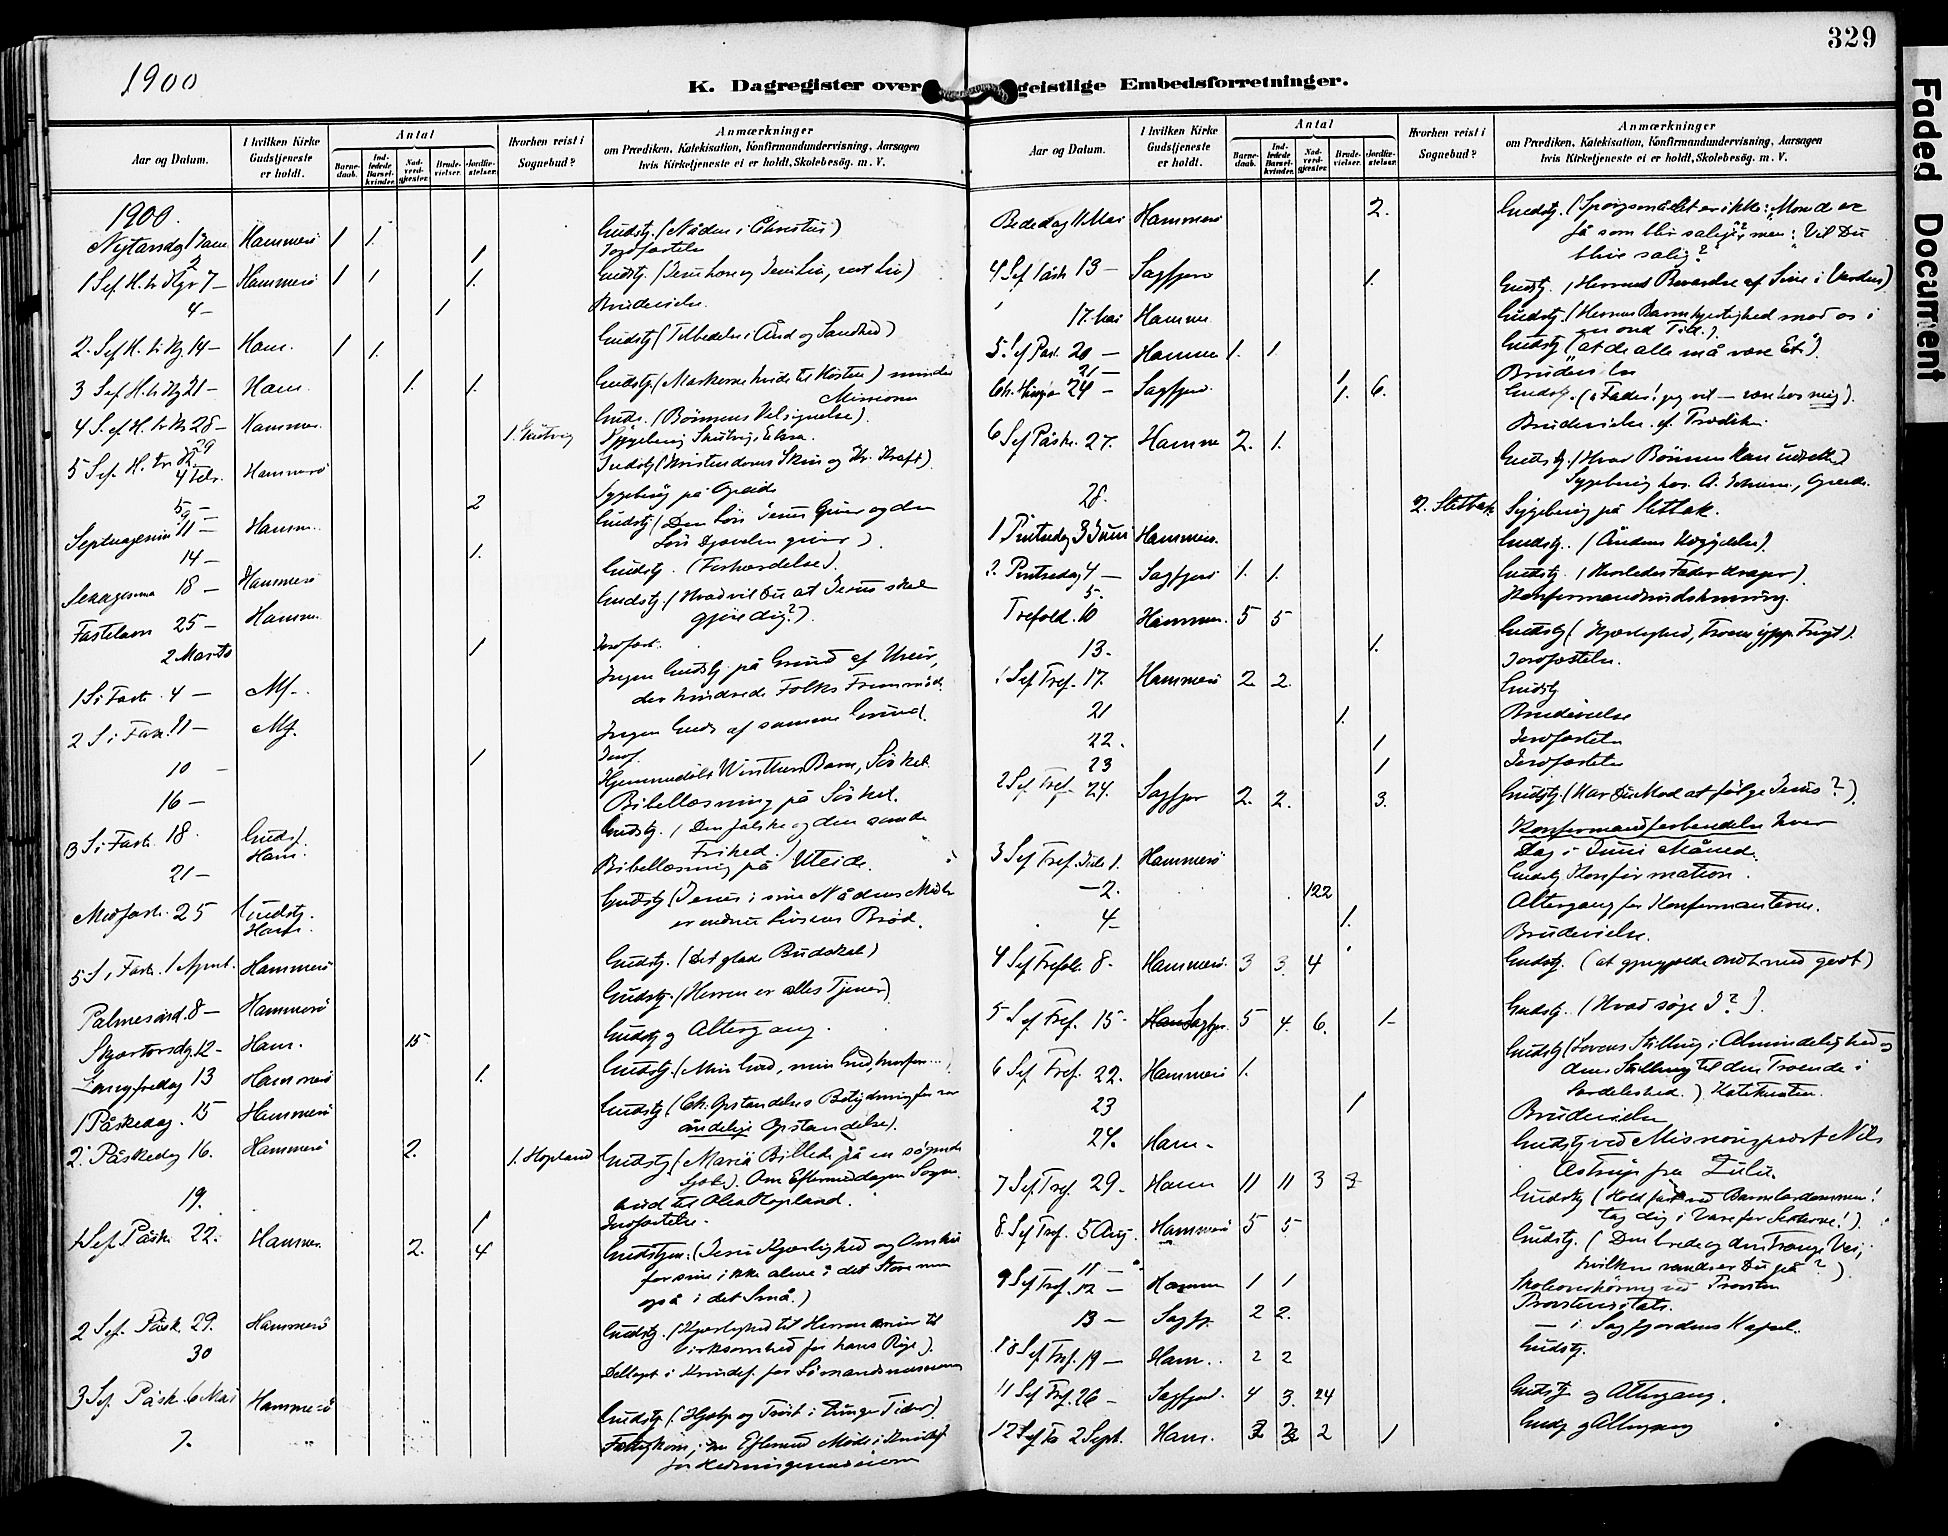 329
1900
K. Dagregister over geistlige Embedsforretninger.
Faded Document
Aar og Datum.
I hvilken Kirke Gudstjeneste er holdt.
Antal
Barne-daab.
Ind-ledede Barsel-kvinder.
Nad-verd-gjester.
Brude-vielser.
Jordfæ-stelser.
Hvorhen reist i Sognebud?
Anmærkninger
om Prædiken, Katekisation, Konfirmandundervisning, Aarsagen
hvis Kirketjeneste ei er holdt, Skolebesøg. m. V.
1900.
Nytårsdg 1 Jan. Hammerö 1 1. Gudstj. (Nåden i Christus)
2 1 Jordfæstelse
1 S. ef. H. tr. Kgr 7 – Hammerö 1 1 1. Gudstj.
4 – 1 Brudevielse.
2. S ef H. tr Kg 14 – Ham. 1 1. Gudstj (Tilbedelse i Ånd og Sandhed)
3 S ef. H. tr Kg 21 – Ham. 1. 1. Gudstj. (Markerne hvide til Høsten)
Missionen
4 S. ef. H. tr. Kr 28 – Hammer. Guds. (Börnenes Velsignelse).
29 1. Skutvig Sygebesög Skutvig
5 S ef. H. tr. K. 4 Febr. Hammerö Gudstj (Kristendoms Skin og Kr. Kraft).
5 – 2
9 – Sygebesög på
Septuagesima 11 – Hamm. Gudstj (Den Lön Jesus giver og den
Lön Djævelen giver).
14 – 1.
Sexagesima 18 – Hammerö Gudstj. (Forhærdelse).
Fastelavn 25 – Hamm. Gudstj. (Hvad vil Du at Jesus skal
gjöre dig?).
2 Marts 1 Jordfæst.
1 S i Fast. 4 – Mf. Ingen Gudstj. på Grund af Uveir,
der hindrede Folks Fremmöde.
2 S i Fast. 11 – Mf. Ingen Guds af samme Grund.
10 – 1 Jordf.
16 – Hjemmedöbt Barn,
Bibellæsning på
3 S i Fast. 18. Gudstj. Ham. Gudstj. (Den falske og den sande
Frihed.
21 – Bibellæsning på Uteide.
Midfast. 25 Gudstj. Ham. Gudstj (Jesus i sine Nådens
er endnu Livsens Bröd.
5 S i Fast. 1 April. Hammerö Gudstj. (Det glade Budskab)
Palmesönd. 8 – Hammerö Gudstj. (Herren er alles Tjener)
Skjærtorsdg. 12 – Ham. 15 Gudstj og Altergang.
Langfredag 13 Hammerö 1. Gudstj. (Min Gud, min Gud, hvorfor...
1 Påskedag. 15 Hammerö Gudstj (Ch. Opstandelses Betydning for vor
åndelige Opstandelse).
2. Påskedag 16. Hammerö 2. 1. Hopland Gudstj (Maria Billede på en
Sjæl). Om Eftermiddagen Sogne-
bud til Hopland.
19. 1 Jordfæstelse.
1 S ef Påske 22. Hammer. 2. 4 Gudstjen: (Jesu Kjærlighed og Omhu
for sine ikke alene i det Store men
også i det Små.)
2 S ef. Påsk. 29. Hammerö Gudstj. (Kjærlighed til Herren til
Virksomhed for hans Rige).
30 Deltaget i for Sömandsmissionen
3 S ef. Påsk. 6 Mai Hammerö Gudstj. (Hjælp og Tröst i Tider).
7. Möde i
for Hedningemissionen
Aar og Datum.
I hvilken Kirke Gudstjeneste er holdt.
Antal
Barne-daab.
Ind-ledede Barsel-kvinder.
Nad-verd-gjester.
Brude-vielser.
Jordfæ-stelser.
Hvorhen reist i Sognebud?
Anmærkninger
om Prædiken, Katekisation, Konfirmandundervisning, Aarsagen
hvis Kirketjeneste ei er holdt, Skolebesøg. m. V.
Bededag 11 Mai Hammerö 2. Gudstj. (Spörgsmålet er ikke: Mon de ere
få som blir salige? men: Vil Du
blive salig?
4 S ef Påsk 13 – Sagfjord 1. Gudstj. (Herrens Bevarelse af Sine i Verden)
17. Mai Hamme. Gudstj. (Herrens Barmhjertighed mod os i
en ond Tid.).
5. S ef Påsk. 20 – Hammer 1. 1. Gudstj (at de alle må være Et).
21 – 1 Brudevielse
Ch. Himm 24 – Sagfjord. 1. 6. Gudstj. (Fader! jeg vil – være hos mig).
Brudevielse.
6 S ef Påsk. 27. Hamme 2. 1. Gudstj. (Hvad Bönnen kan udrette)
Sygebesög hos
28. 2. Slettbak Sygebesög på Slettbak.
1 Pintsedag 3 Juni Hammerö. Gudstj. (Åndens Udgydelse).
2. Pintsedag 4 – Sagfjord 1. 1. Gudstj. (Hvorledes Fader drager).
5. Konfirmandindskrivning.
Trefold. 10 Hammer. 5 5 Gudstj (Kjærlighed, Troens ypp. Frugt).
13. 1. Jordfæstelse.
1 S ef Tref. 17. Hammerö 2. 2. Gudstj
21 1. Brudevielse
22. 1 Jordfæstelse
23 1 Jordfæstelse
2 S ef Tref. 24. Sagfjor 2. 2. 3. Gudstj. (Har Du Mod at fölge Jesus?).
Konfirmandforberedelse hver
Dag i Juni Måned.
3 S ef Tref. Juli 1. Hammerö Gudstj Konfirmation.
– 2. 122 Altergang for Konfirmanterne.
4 – 1. Brudevielse.
4 S ef Trefold. 8 – Hammerö. 3 3. 4 Gudstj. (at gjengjælde ondt med godt)
5 S ef Tref. 15 – Ham Sagfjor. 5 4. 6. 1 – Gudstj. (Hvad söge I?).
6 S ef Tref. 22. Hammerö 1. Gudstj (Lovens Stilling i Almindelighed og
dens Stilling til den Troende i
Særdeleshed.)
23 1 Brudevielse
24. Ham – Gudstj ved Missionsprest Nils
Astrup fra Zulu.
7 S ef Tref. 29 – Hamm 11 11 3 2 Gudstj (Hold fast ved Barnelærdommen!
tag dig i Vare for Sekterne!).
8. S ef Tref. 5 Aug. Hammerö 5 5 Gudstj. (Den brede og den trange Vei,
hvilken vandrer Du på?).
11 – Skoleoverhöring ved Provsten
9 S ef Tref. 12 – Hammer 1 1 Provstevisitats.
13 – Sagfj. 2 2. – i Sagfjordens Kapel.
10 S ef Tref. 19 – Ham. 2 2 Gudstj.
11 S ef Tref. 26 – Sagfjord. 4 3. 24 Gudstj og Altergang.
12 S ef Tr 2 Sept. Ham. 2 1 Gudstj og Altergang